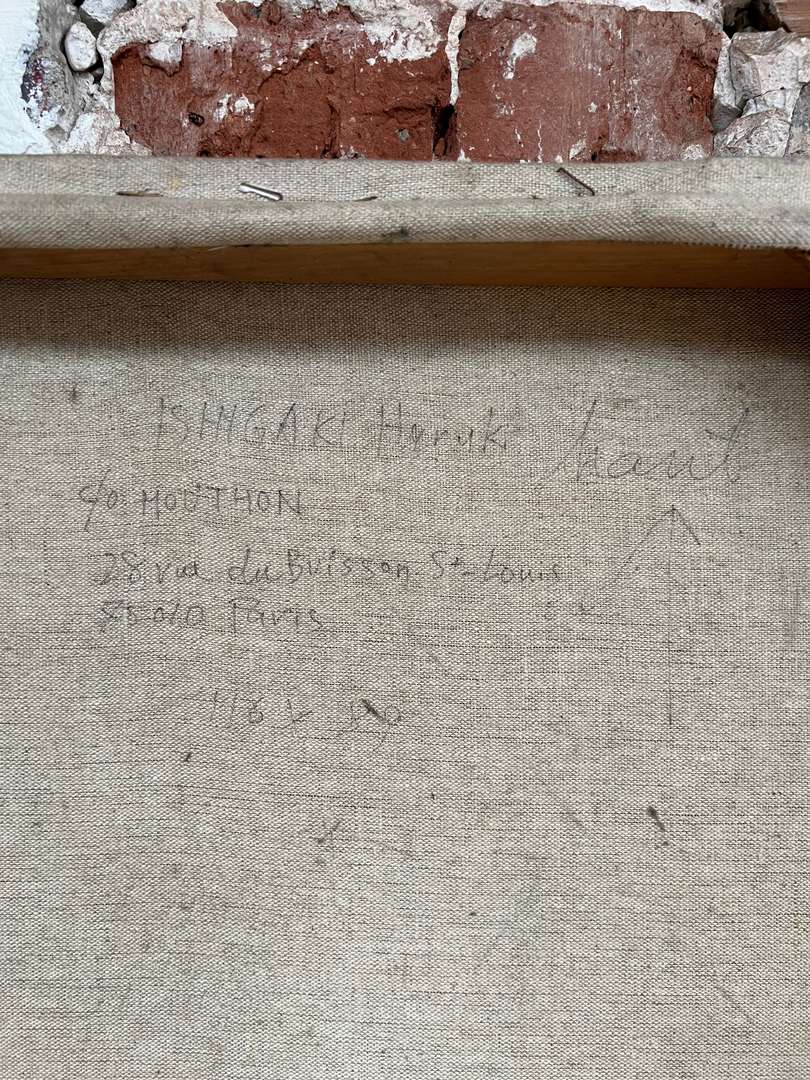 ISHIGAKI Haruki
haut
c/o MOUTHON
28 rue du Buisson St-Louis
75010 Paris